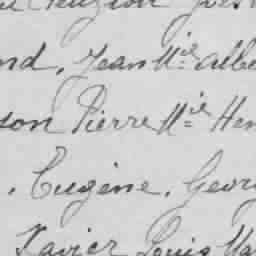 nd, Jean Mie Albe
son Pierre Mie Hen
, Eugène, Georg
Xavier Louis Ma